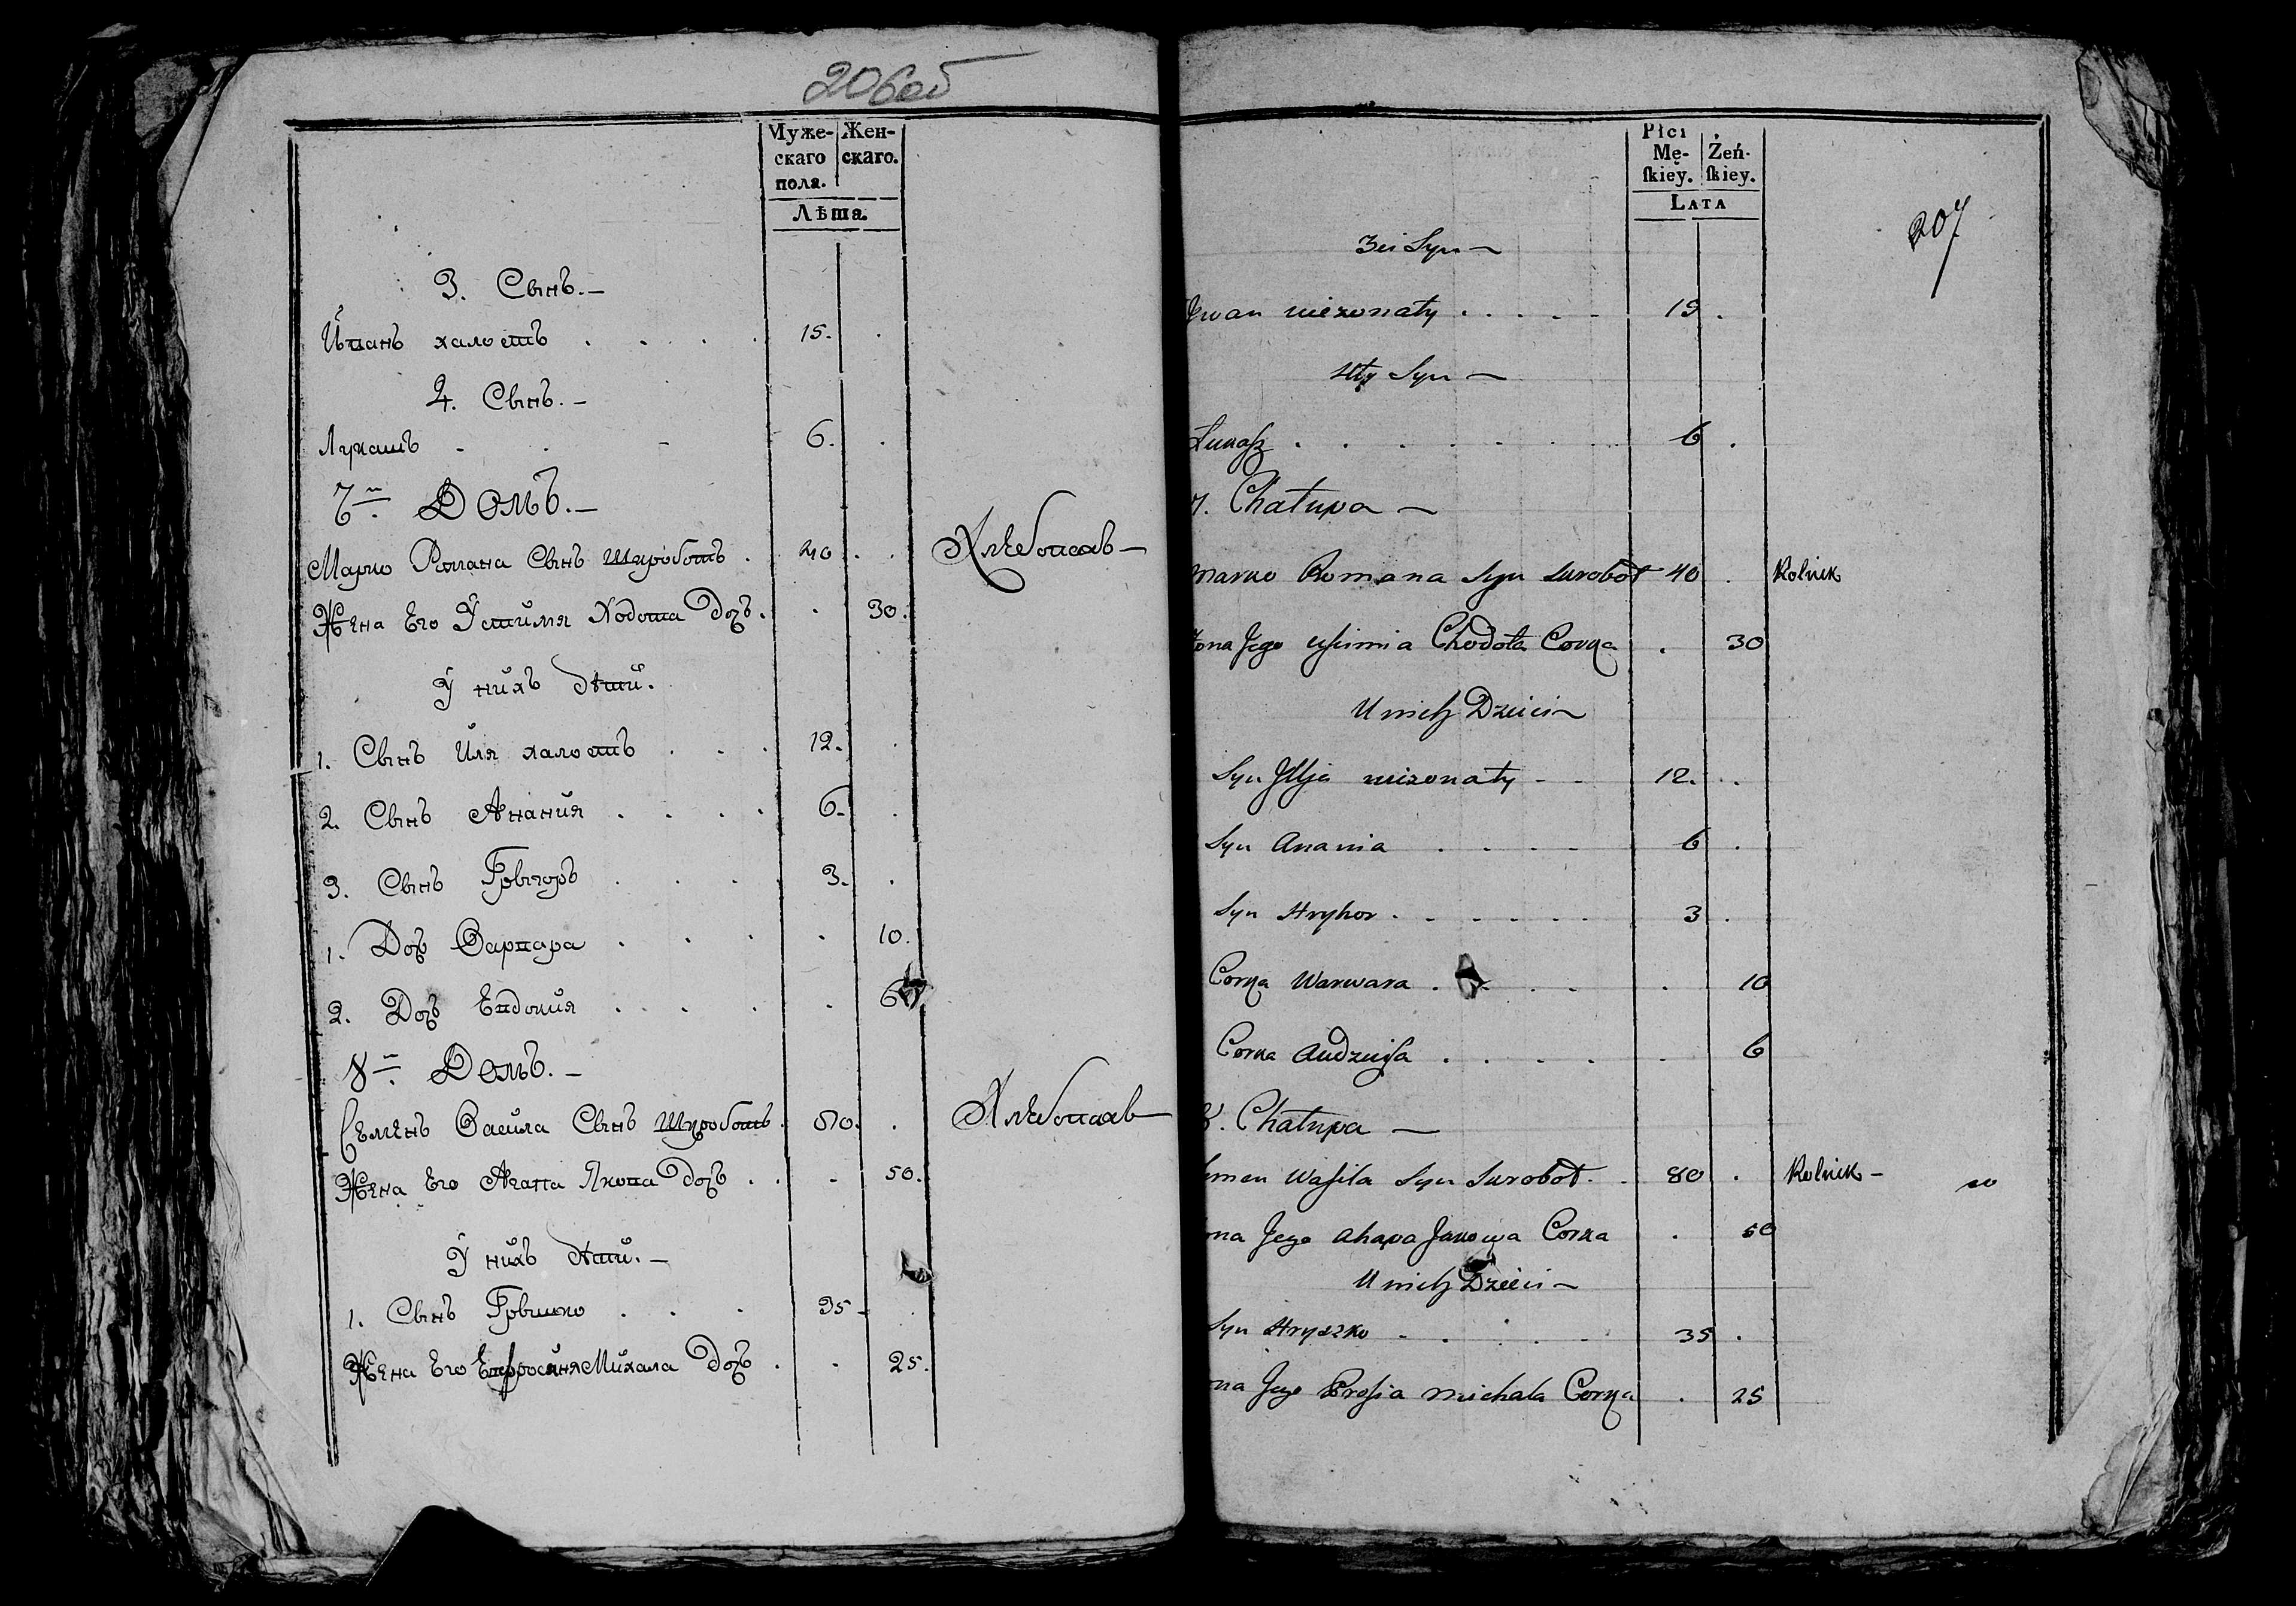 206об
Муже- Жен-
скаго скаго.
пола.
Лѣта.
3. Сынъ.—
Иванъ халостъ . . . . . 15. .
4. Сынъ.—
Лукашъ - . - 6. .
7й Домъ.—
Марко Романа Сынъ Шуроботъ . 40 . . Хлебопашъ—
Жена Его Устимія Ходота Дочъ . . 30.
У нихъ дѣти.
1. Сынъ Иля халостъ . . . 12. .
2. Сынъ Ананія . . . . 6. .
3. Сынъ Грыгоръ . . . 3. .
1. Дочъ Варвара . . . . 10.
2. Дочъ Евдокия . . . . . 6
8й Домъ.—
Семенъ Васила Сынъ Шуроботъ. 80. . Хлебопашъ—
Жена Его Агапа Якова Дочъ . . - 50.
У нихъ дѣти.—
1. Сынъ Грышко . . . 35 - .
Жена Его Ефросиня Михала Дочъ . . 25.
Płci
Mę- Żeń-
ſkiey. ſkiey.
LATA
207
3ci Syn —
Jwan niezonaty . . . . . 15 .
4ty Syn —
Łukasz . . . . . . . 6 .
7. Chałupa —
Marko Romana Syn Surobot 40 . Rolnik
Zona Jego Uscimia Chodota Corka . 30
U nich Dzieci —
Syn Jllja niezonaty - - 12. .
Syn Anania . . . . 6 .
Syn Hryhor . . . . . . 3 .
Corka Warwara . . . . . 10
Corka Audzieia . . . . . . 6
8. Chałupa —
emen Wasila Syn Surobot . . 80 . Rolnik —
ona Jego Ahapa Jakowa Corka . 50
U nich Dzieci —
Syn Hryszko . . . . . 35 .
ona Jego Prosia Michala Corka . 25